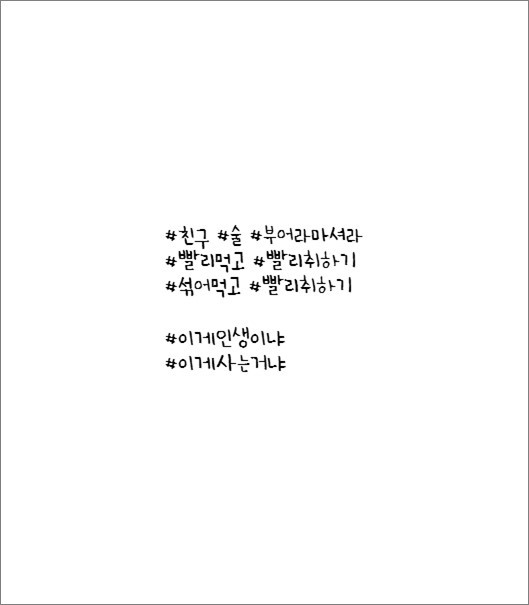 #친구 #술 #부어라마셔라
#빨리먹고 #빨리취하기
#섞어먹고 #빨리취하기
#이게인생이냐
#이게사는거냐